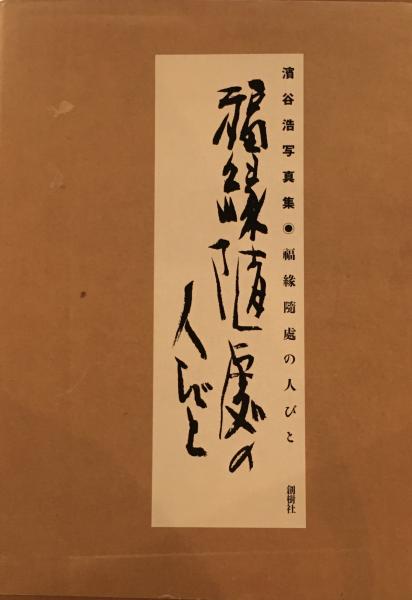 濱谷浩写真集◉福縁随處の人びと
福縁随處の
人びと
創樹社